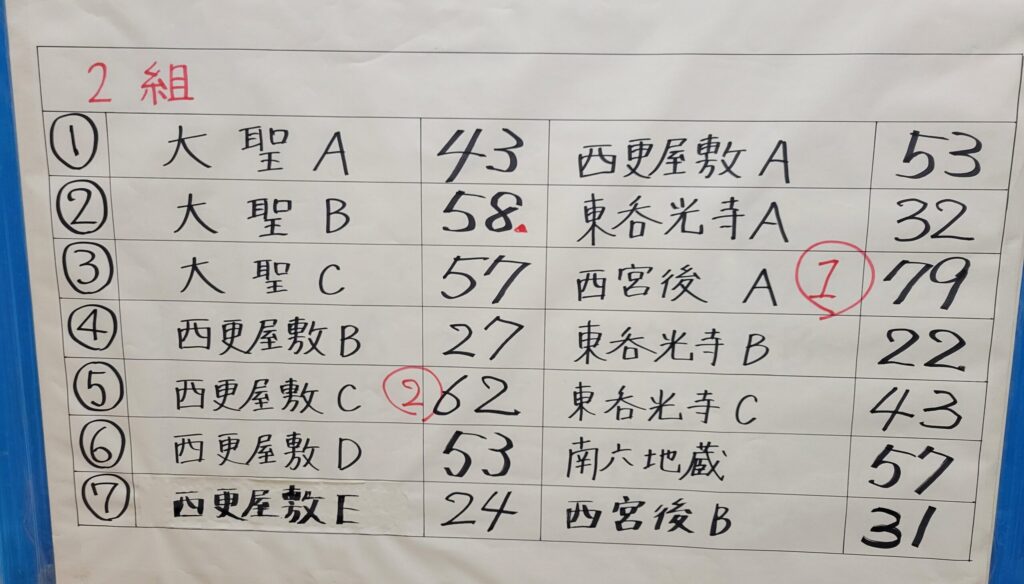 2 組
① 大聖A 43 西更屋敷A 53
② 大聖B 58. 東呑光寺A 32
③ 大聖C 57 西宮後 A 1 79
④ 西更屋敷B 27 東呑光寺B 22
⑤ 西更屋敷C 2 62 東呑光寺C 43
⑥ 西更屋敷D 53 南六地蔵 57
⑦ 西更屋敷E 24 西宮後B 31